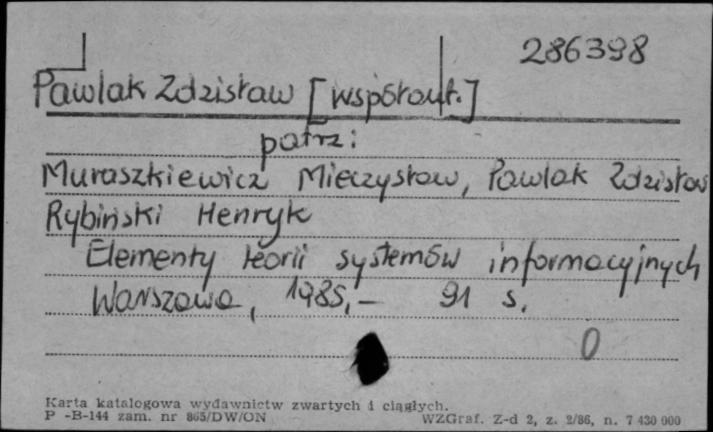 286398
Pawlak Zdzisław [współaut.]
patrz:
Muraszkiewicz Mieczysław, Pawlak Zdzisław
Rybiński Henryk
Elementy teorii systemów informacyjnych
Warszawa, 1985,- 91 s.
0
Karta katalogowa wydawnictw zwartych i ciągłych.
P -B-144 zam. nr 865/DW/ON WZGraf. Z-d 2, z. 2/86, n. 7 430 000